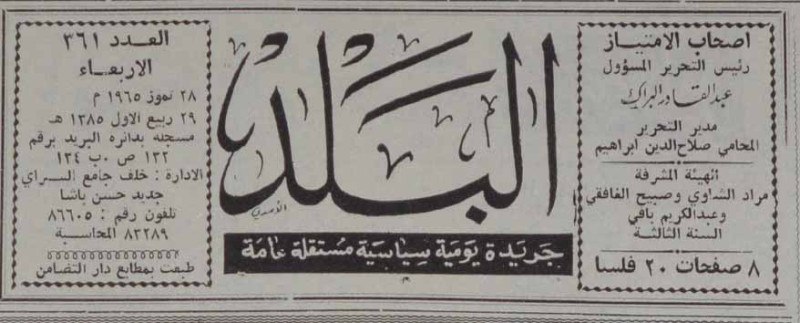 اصحاب الامتياز
رئيس التحرير المسؤول
عبدالقادر البراك
مدير التحرير
المحامي صلاح الدين ابراهيم
الهيئة المشرفة
مراد الشاوي وصبيح الغافقي
وعبدالكريم باقي
السنة الثالثة
٨ صفحات ٢٠ فلسا
البلد
جريدة يومية سياسية مستقلة عامة
العدد ٣٦١
الاربعاء
٢٨ تموز ١٩٦٥ م
٢٩ ربيع الاول ١٣٨٥ هـ
مسجلة بدائرة البريد برقم
١٣٢ ص٠ب ١٣٤
الادارة : خلف جامع السراي
جديد حسن باشا
تلفون رقم : ٨٦٦٠٥
٨٢٢٨٩ المحاسبة
طبعت بمطابع دار التضامن